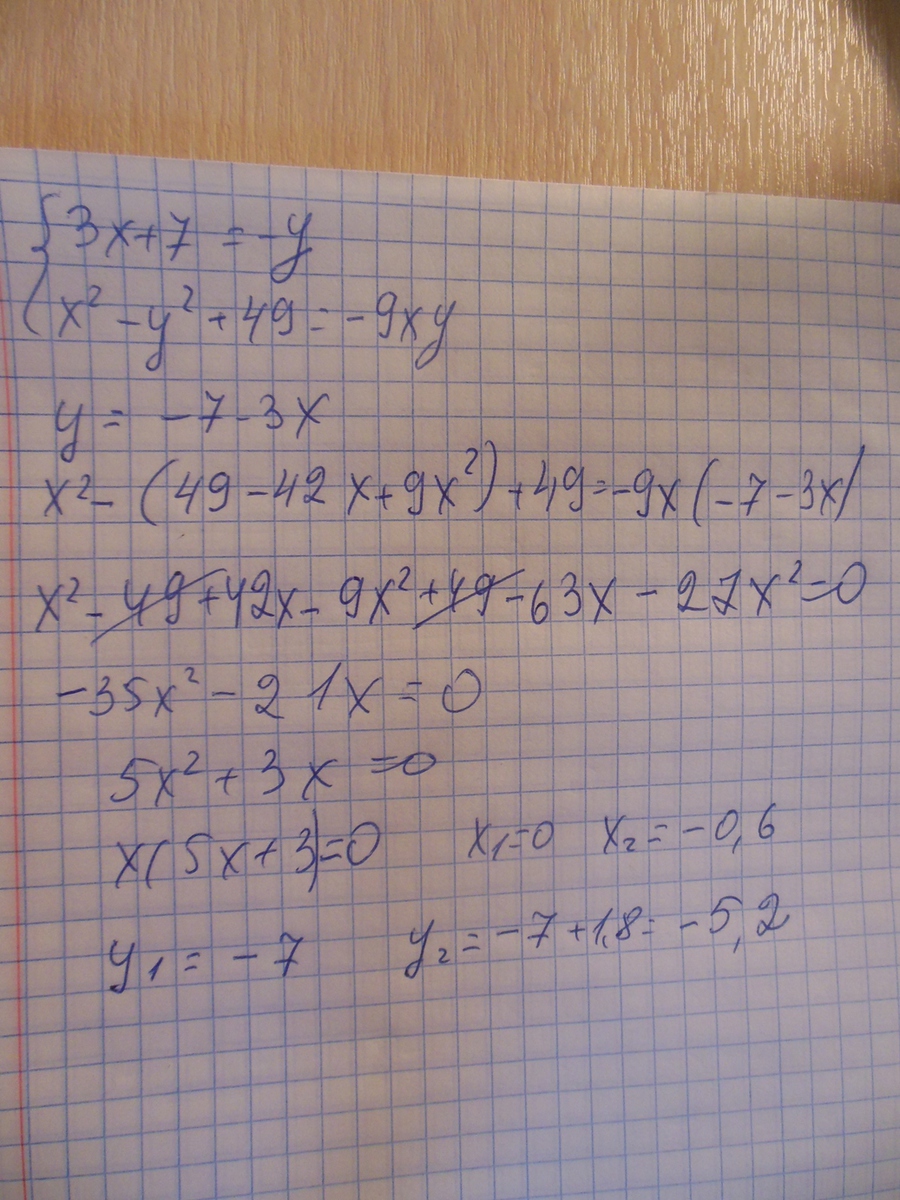 { 3x+7 = -y
x² - y² + 49 = -9xy
y = -7-3x
x² - (49 - 42x + 9x²) + 49 = -9x(-7-3x)
x² - 49 + 42x - 9x² + 49 - 63x - 27x² = 0
-35x² - 21x = 0
5x² + 3x = 0
x(5x+3)=0 x₁=0 x₂ = -0,6
y₁ = -7 y₂ = -7+1,8 = -5,2